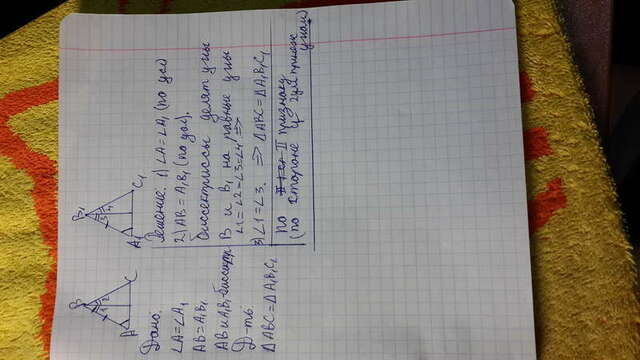 B
A
C
1
2
B₁
A₁
C₁
3
4
Дано:
∠A=∠A₁
AB=A₁B₁
Д-ть:
△ABC=△A₁B₁C₁
Решение: 1) ∠A=∠A₁ (по усл)
2) AB=A₁B₁ (по усл).
биссектриссы делят углы
B и B₁ на равные углы
∠1=∠2=∠3=∠4 =>
3) ∠1=∠3. => △ABC=△A₁B₁C₁
по II признаку
(по стороне и 2ум прилеж
углам)